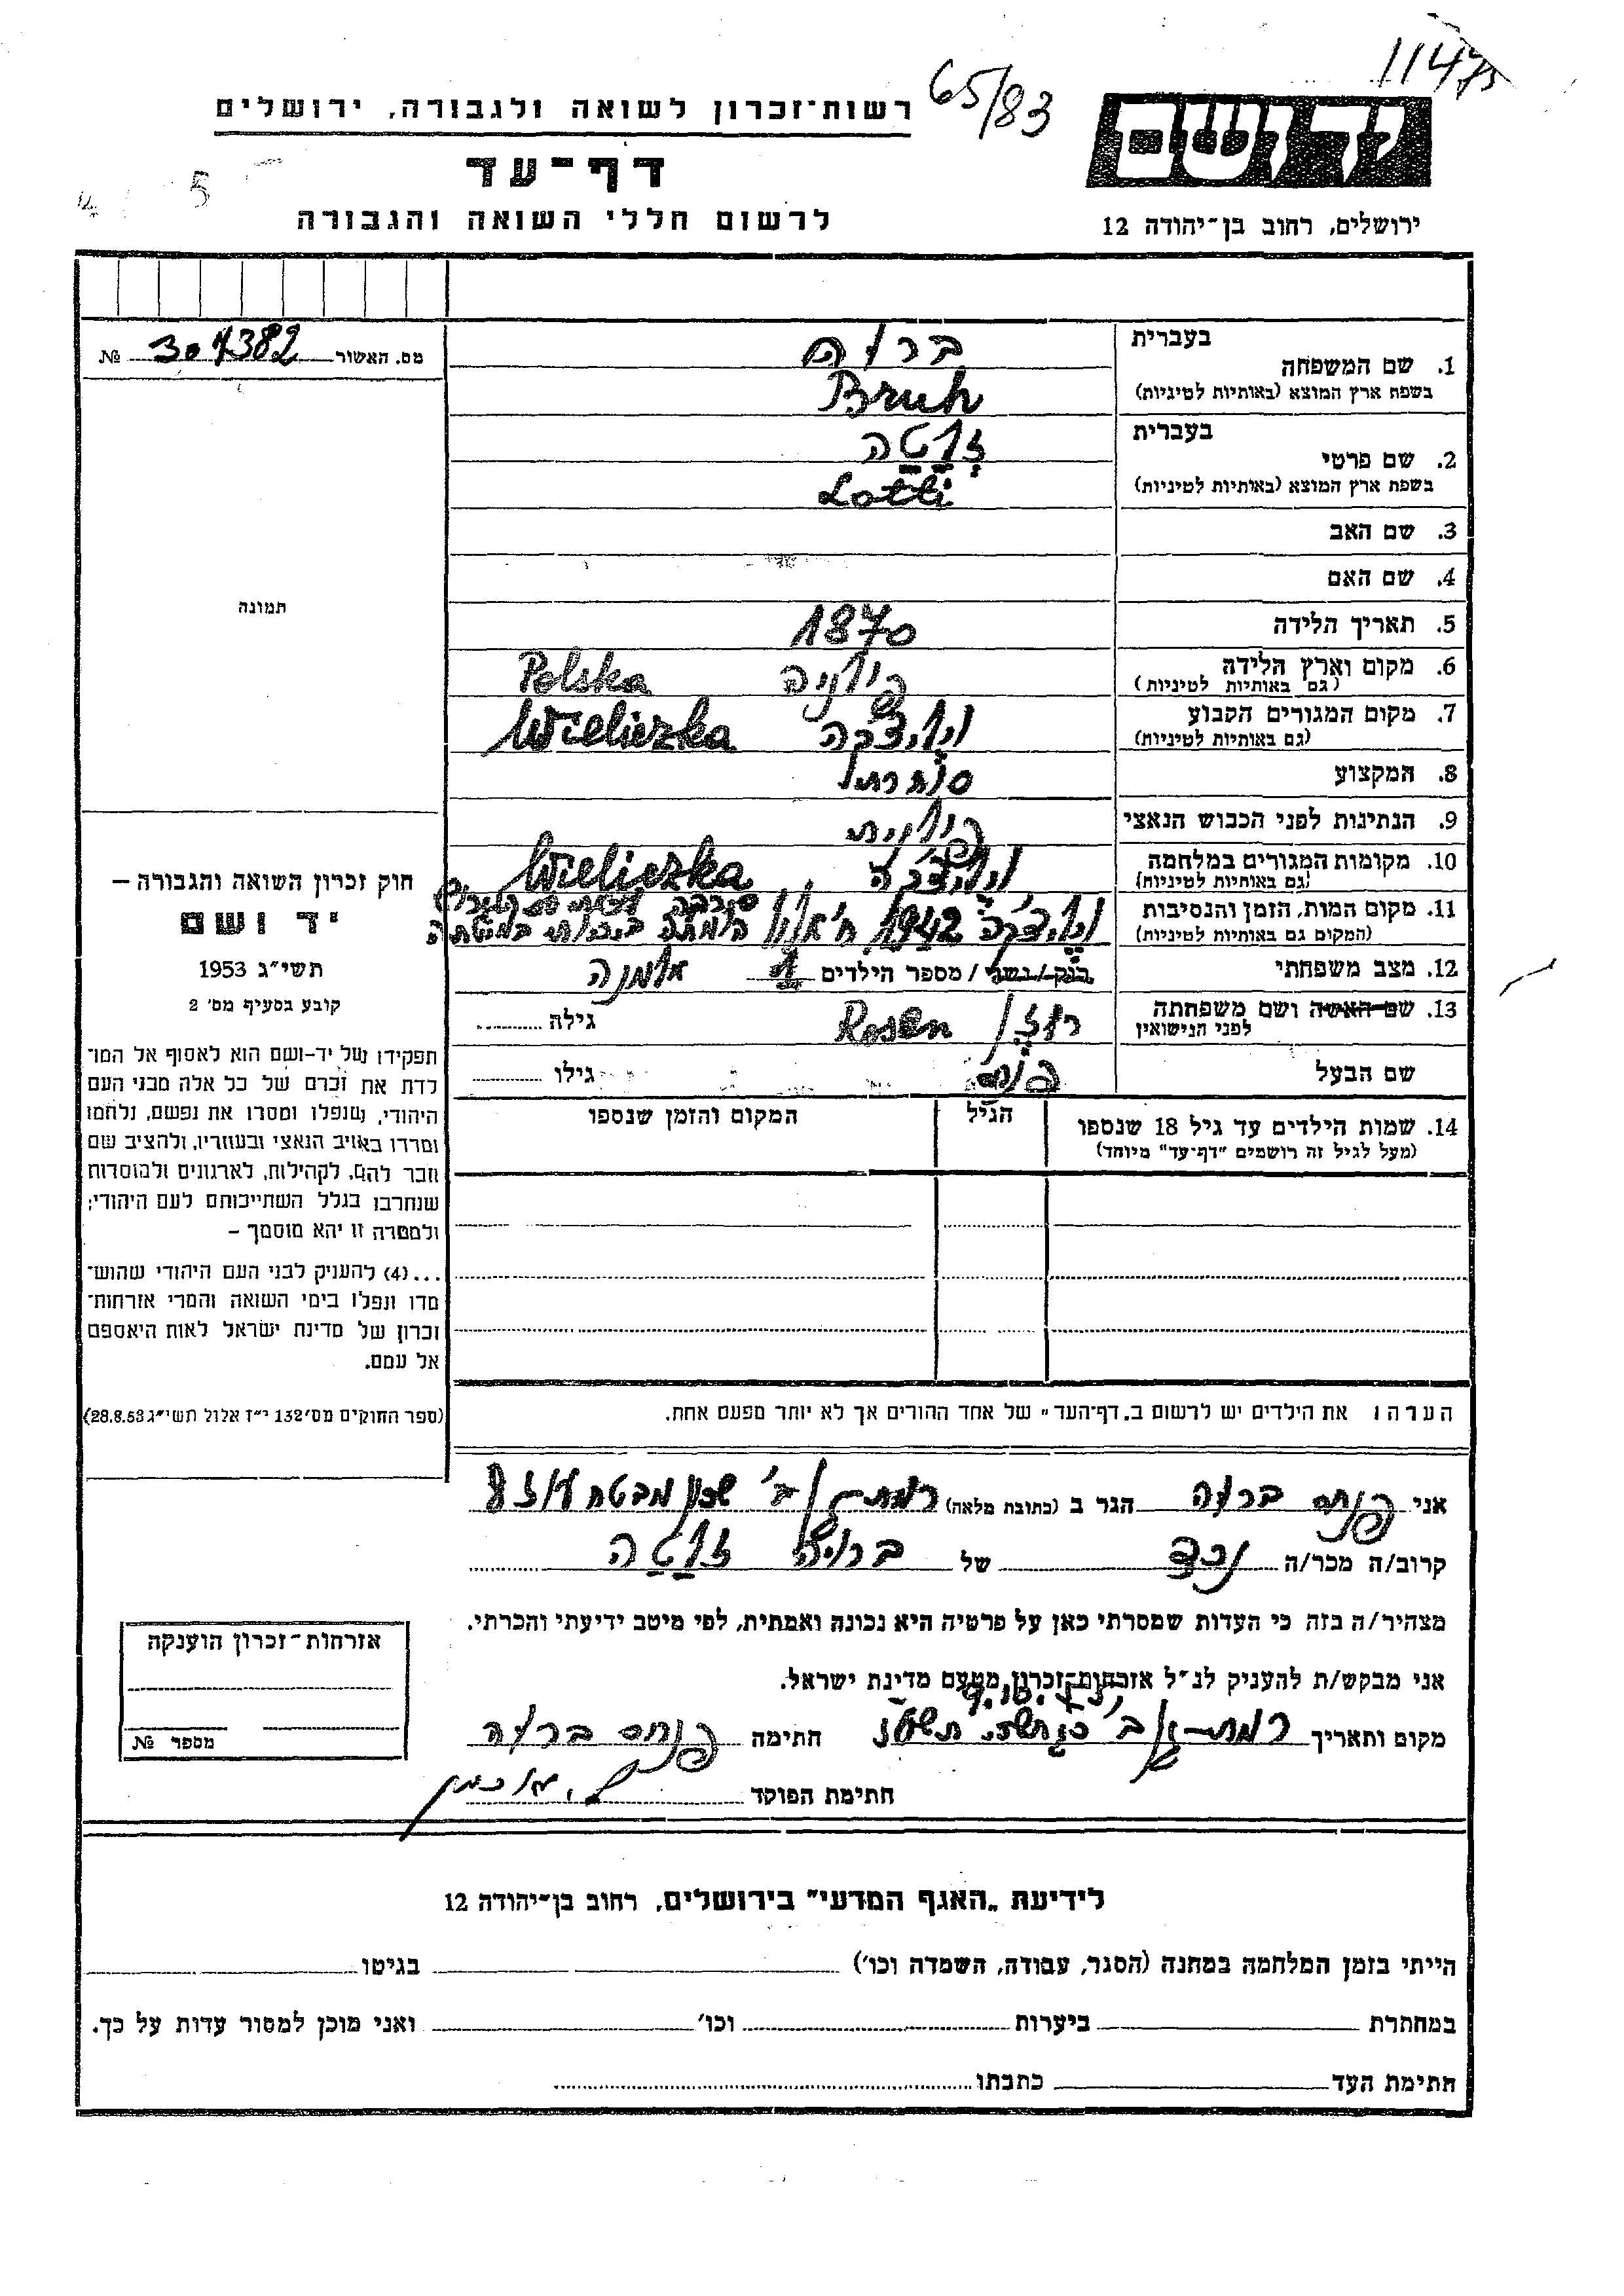 11475
65/83
רשות־זכרון לשואה ולגבורה, ירושלים
יד ושם
דף־עד
5
לרשום חללי השואה והגבורה
ירושלים, רחוב בן־יהודה 12
מס. האשור 307382 №
תמונה
בעברית ברוה
1. שם המשפחה
בשפת ארץ המוצא (באותיות לטיניות) Bruh
בעברית לוטה
2. שם פרטי
בשפת ארץ המוצא (באותיות לטיניות) Lotti
3. שם האב
4. שם האם
5. תאריך הלידה 1870
6. מקום וארץ הלידה פולניה Polska
(גם באותיות לטיניות)
7. מקום המגורים הקבוע Wieliczka
(גם באותיות לטיניות)
8. המקצוע סוחרת
9. הנתינות לפני הכבוש הנאצי פולנית
10. מקומות המגורים במלחמה Wieliczka
(גם באותיות לטיניות)
11. מקום המות, הזמן והנסיבות
(המקום גם באותיות לטיניות) 1942 ח' אלול
12. מצב משפחתי רוק / נשוי / מספר הילדים 1 אלמנה
13. שם האשה ושם משפחתה רוזן Rosen גילה
לפני הנישואין
שם הבעל פנחס גילו
14. שמות הילדים עד גיל 18 שנספו הגיל המקום והזמן שנספו
(מעל לגיל זה רושמים "דף־עד" מיוחד)
חוק זכרון השואה והגבורה –
יד ושם
תשי"ג 1953
קובע בסעיף מס' 2
תפקידו של יד-ושם הוא לאסוף אל המו־
לדת את זכרם של כל אלה מבני העם
היהודי, שנפלו ומסרו את נפשם, נלחמו
ומרדו באויב הנאצי ובעוזריו, ולהציב שם
וזכר להם, לקהילות, לארגונים ולמוסדות
שנחרבו בגלל השתייכותם לעם היהודי;
ולמטרה זו יהא מוסמך –
...(4) להעניק לבני העם היהודי שהוש־
מדו ונפלו בימי השואה והמרי אזרחות־
זכרון של מדינת ישראל לאות היאספם
אל עמם.
(ספר החוקים מס' 132 י"ז אלול תשי"ג 28.8.53)
הערה: את הילדים יש לרשום ב„דף־העד" של אחד ההורים אך לא יותר מפעם אחת.
אני פנחס ברוה הגר ב (כתובת מלאה) רמת־גן ב' שכון מבטח
קרוב/ה מכר/ה נכד של ברוה לוטה
מצהיר/ה בזה כי העדות שמסרתי כאן על פרטיה היא נכונה ואמתית, לפי מיטב ידיעתי והכרתי.
אני מבקש/ת להעניק לנ"ל אזרחות־זכרון מטעם מדינת ישראל.
מקום ותאריך רמת־גן ב' חתימה פנחס ברוה
חתימת הפוקד
אזרחות־זכרון הוענקה
מספר №
לידיעת „האגף המדעי" בירושלים, רחוב בן־יהודה 12
הייתי בזמן המלחמה במחנה (הסגר, עבודה, השמדה וכו') בגיטו
במחתרת ביערות וכו' ואני מוכן למסור עדות על כך.
חתימת העד כתבתו